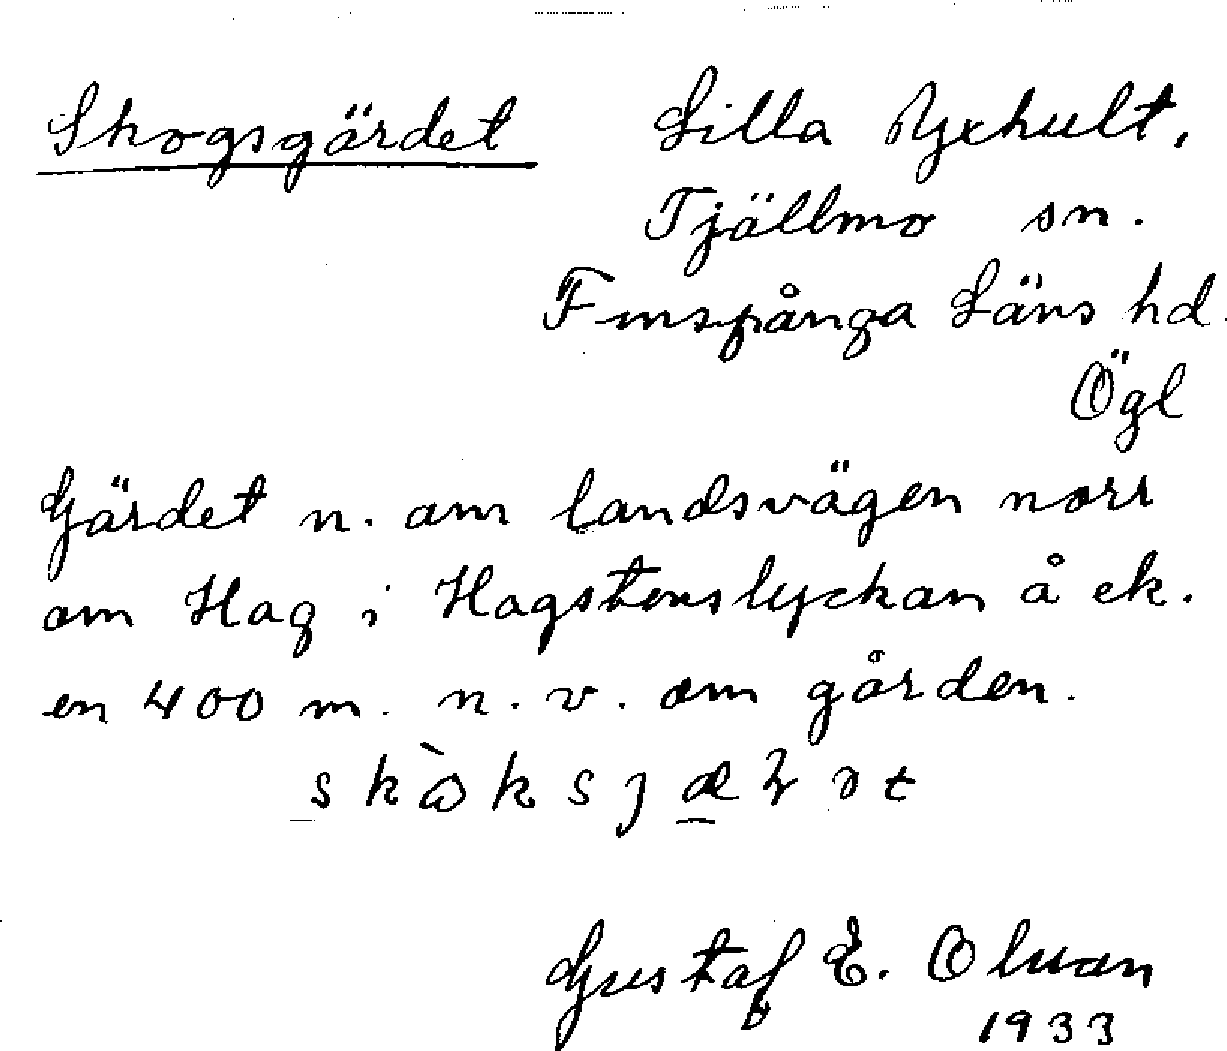 Skogsgärdet
Lilla Yxhult,
Tjällmo sn.
Finspånga Läns hd.
Ögl
Gärdet n. om landsvägen norr
om Hag i Hagstenslyckan å ek.
en 400 m. n. v. om gården.
Gustaf E.
1933